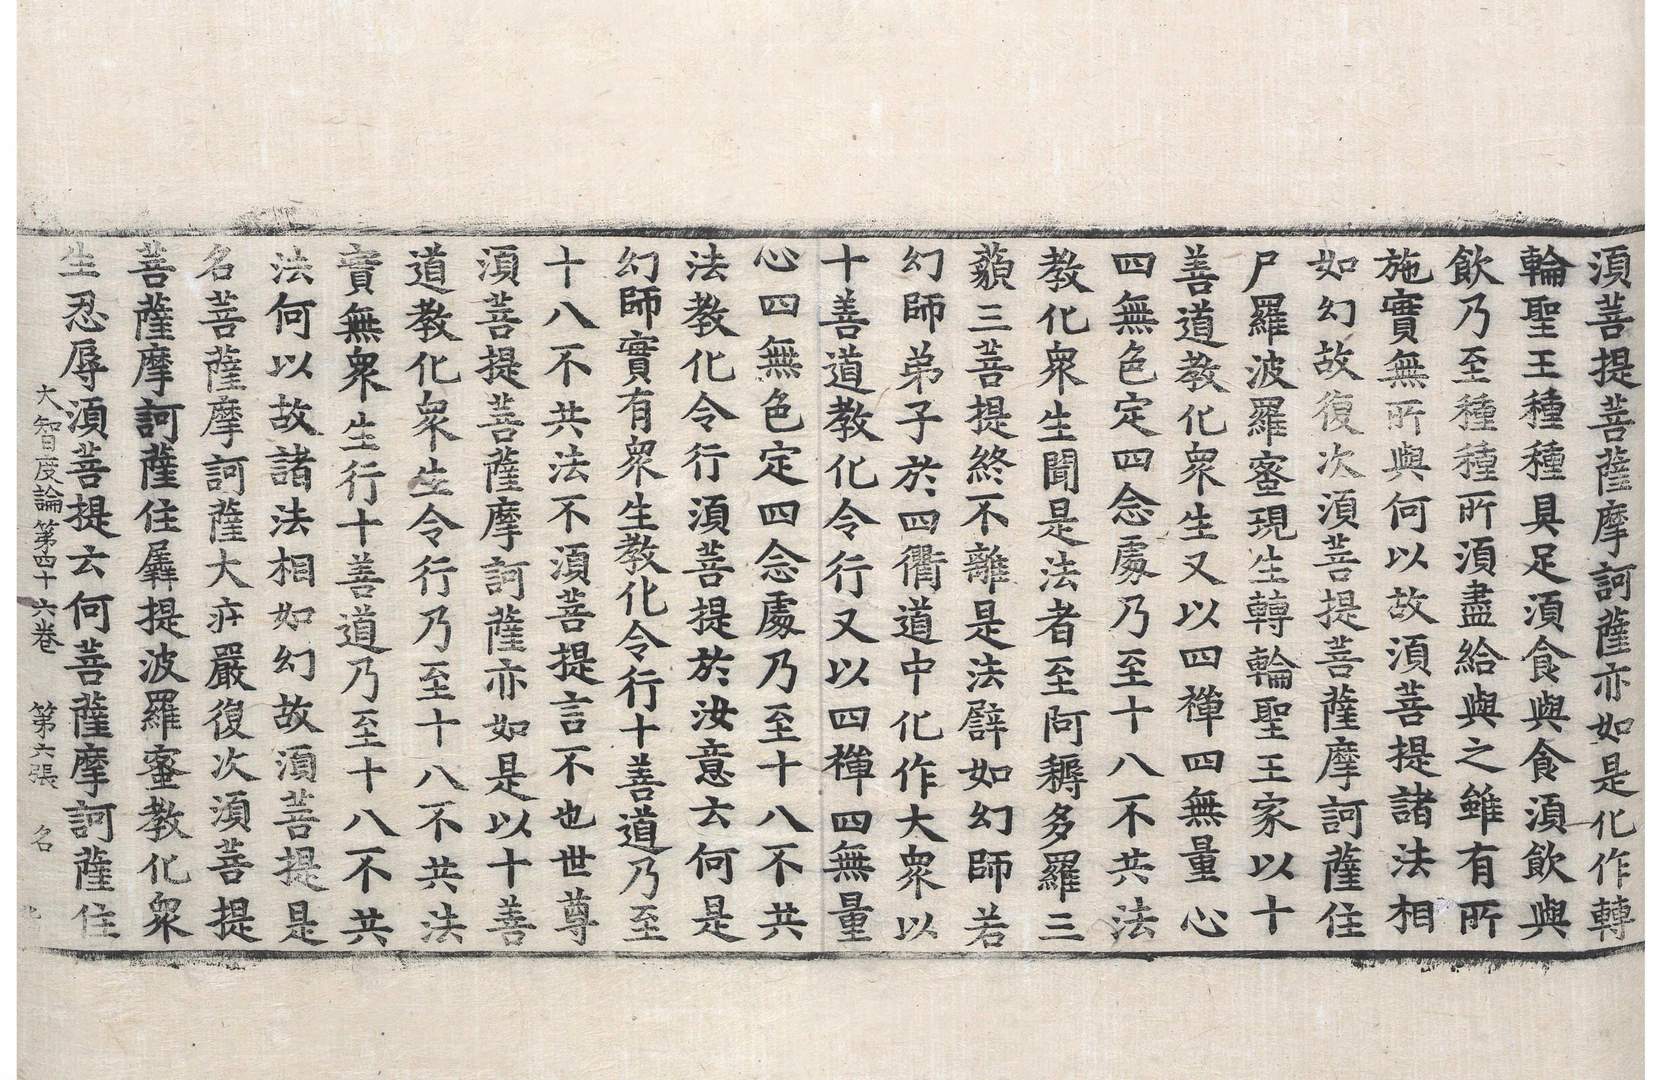 須菩提菩薩摩訶薩亦如是化作轉
輪聖王種種具足須食與食須飲與
飲乃至種種所須盡給與之雖有所
施實無所與何以故須菩提諸法相
如幻故復次須菩提菩薩摩訶薩住
尸羅波羅蜜現生轉輪聖王家以十
善道教化衆生又以四禪四無量心
四無色定四念處乃至十八不共法
教化衆生聞是法者至阿耨多羅三
藐三菩提終不離是法譬如幻師若
幻師弟子於四衢道中化作大衆以
十善道教化令行又以四禪四無量
心四無色定四念處乃至十八不共
法教化令行須菩提於汝意云何是
幻師實有衆生教化令行十善道乃至
十八不共法不須菩提言不也世尊
須菩提菩薩摩訶薩亦如是以十善
道教化衆生令行乃至十八不共法
實無衆生行十善道乃至十八不共
法何以故諸法相如幻故須菩提是
名菩薩摩訶薩大庄嚴復次須菩提
菩薩摩訶薩住羼提波羅蜜教化衆
生忍辱須菩提云何菩薩摩訶薩住
大智度論第四十六卷 第六張 名